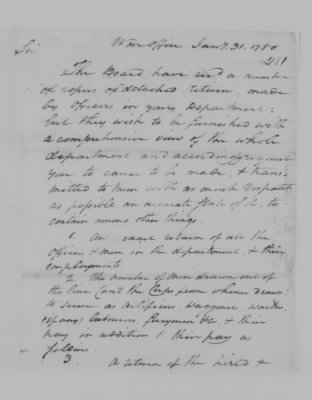 War Office Jany. 31. 1780
Sir
281
The Board have recd a number
of copies of detached returns, made
by Officers in your Department:
but they wish to be furnished with
a comprehensive view of the whole
department and accordingly request
you to cause to be made, & trans-
mitted to them with as much dispatch
as possible an accurate State of it, to
contain among other things.
1. An exact return of all the
Officers & men in the department, & their
employments.
2. The number of men drawn out of
the line (and the Corps from whence drawn)
to serve as Artificers, Waggoners,
(if any) Labourers, &c, & their
pay in addition to their pay as
soldiers.
3. A return of the hired &